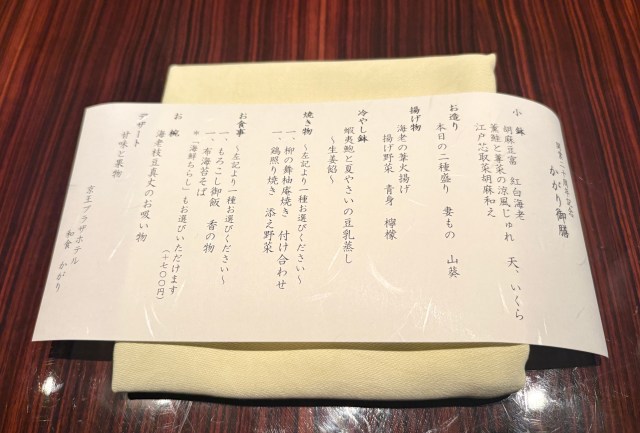 開業二十周年記念
かがり御膳
小　鉢
胡麻豆富　紅白海老　天、いくら
薫鮭と蓴菜の涼風じゅれ
江戸芯取菜胡麻和え
お造り
本日の二種盛り　妻もの　山葵
揚げ物
海老の葉火揚げ
揚げ野菜　青身　檸檬
冷やし鉢
蝦夷鮑と夏やさいの豆乳蒸し
～生姜餡～
焼き物　～左記より一種お選びください～
一、柳の舞柚庵焼き　付け合わせ
一、鶏照り焼き　添え野菜
お食事　～左記より一種お選びください～
一、もろこし御飯　香の物
一、布海苔そば
※「海鮮ちらし」もお選びいただけます
（+七〇〇円）
お　椀
海老枝豆真丈のお吸い物
デザート
甘味と果物
京王プラザホテル
和食　かがり